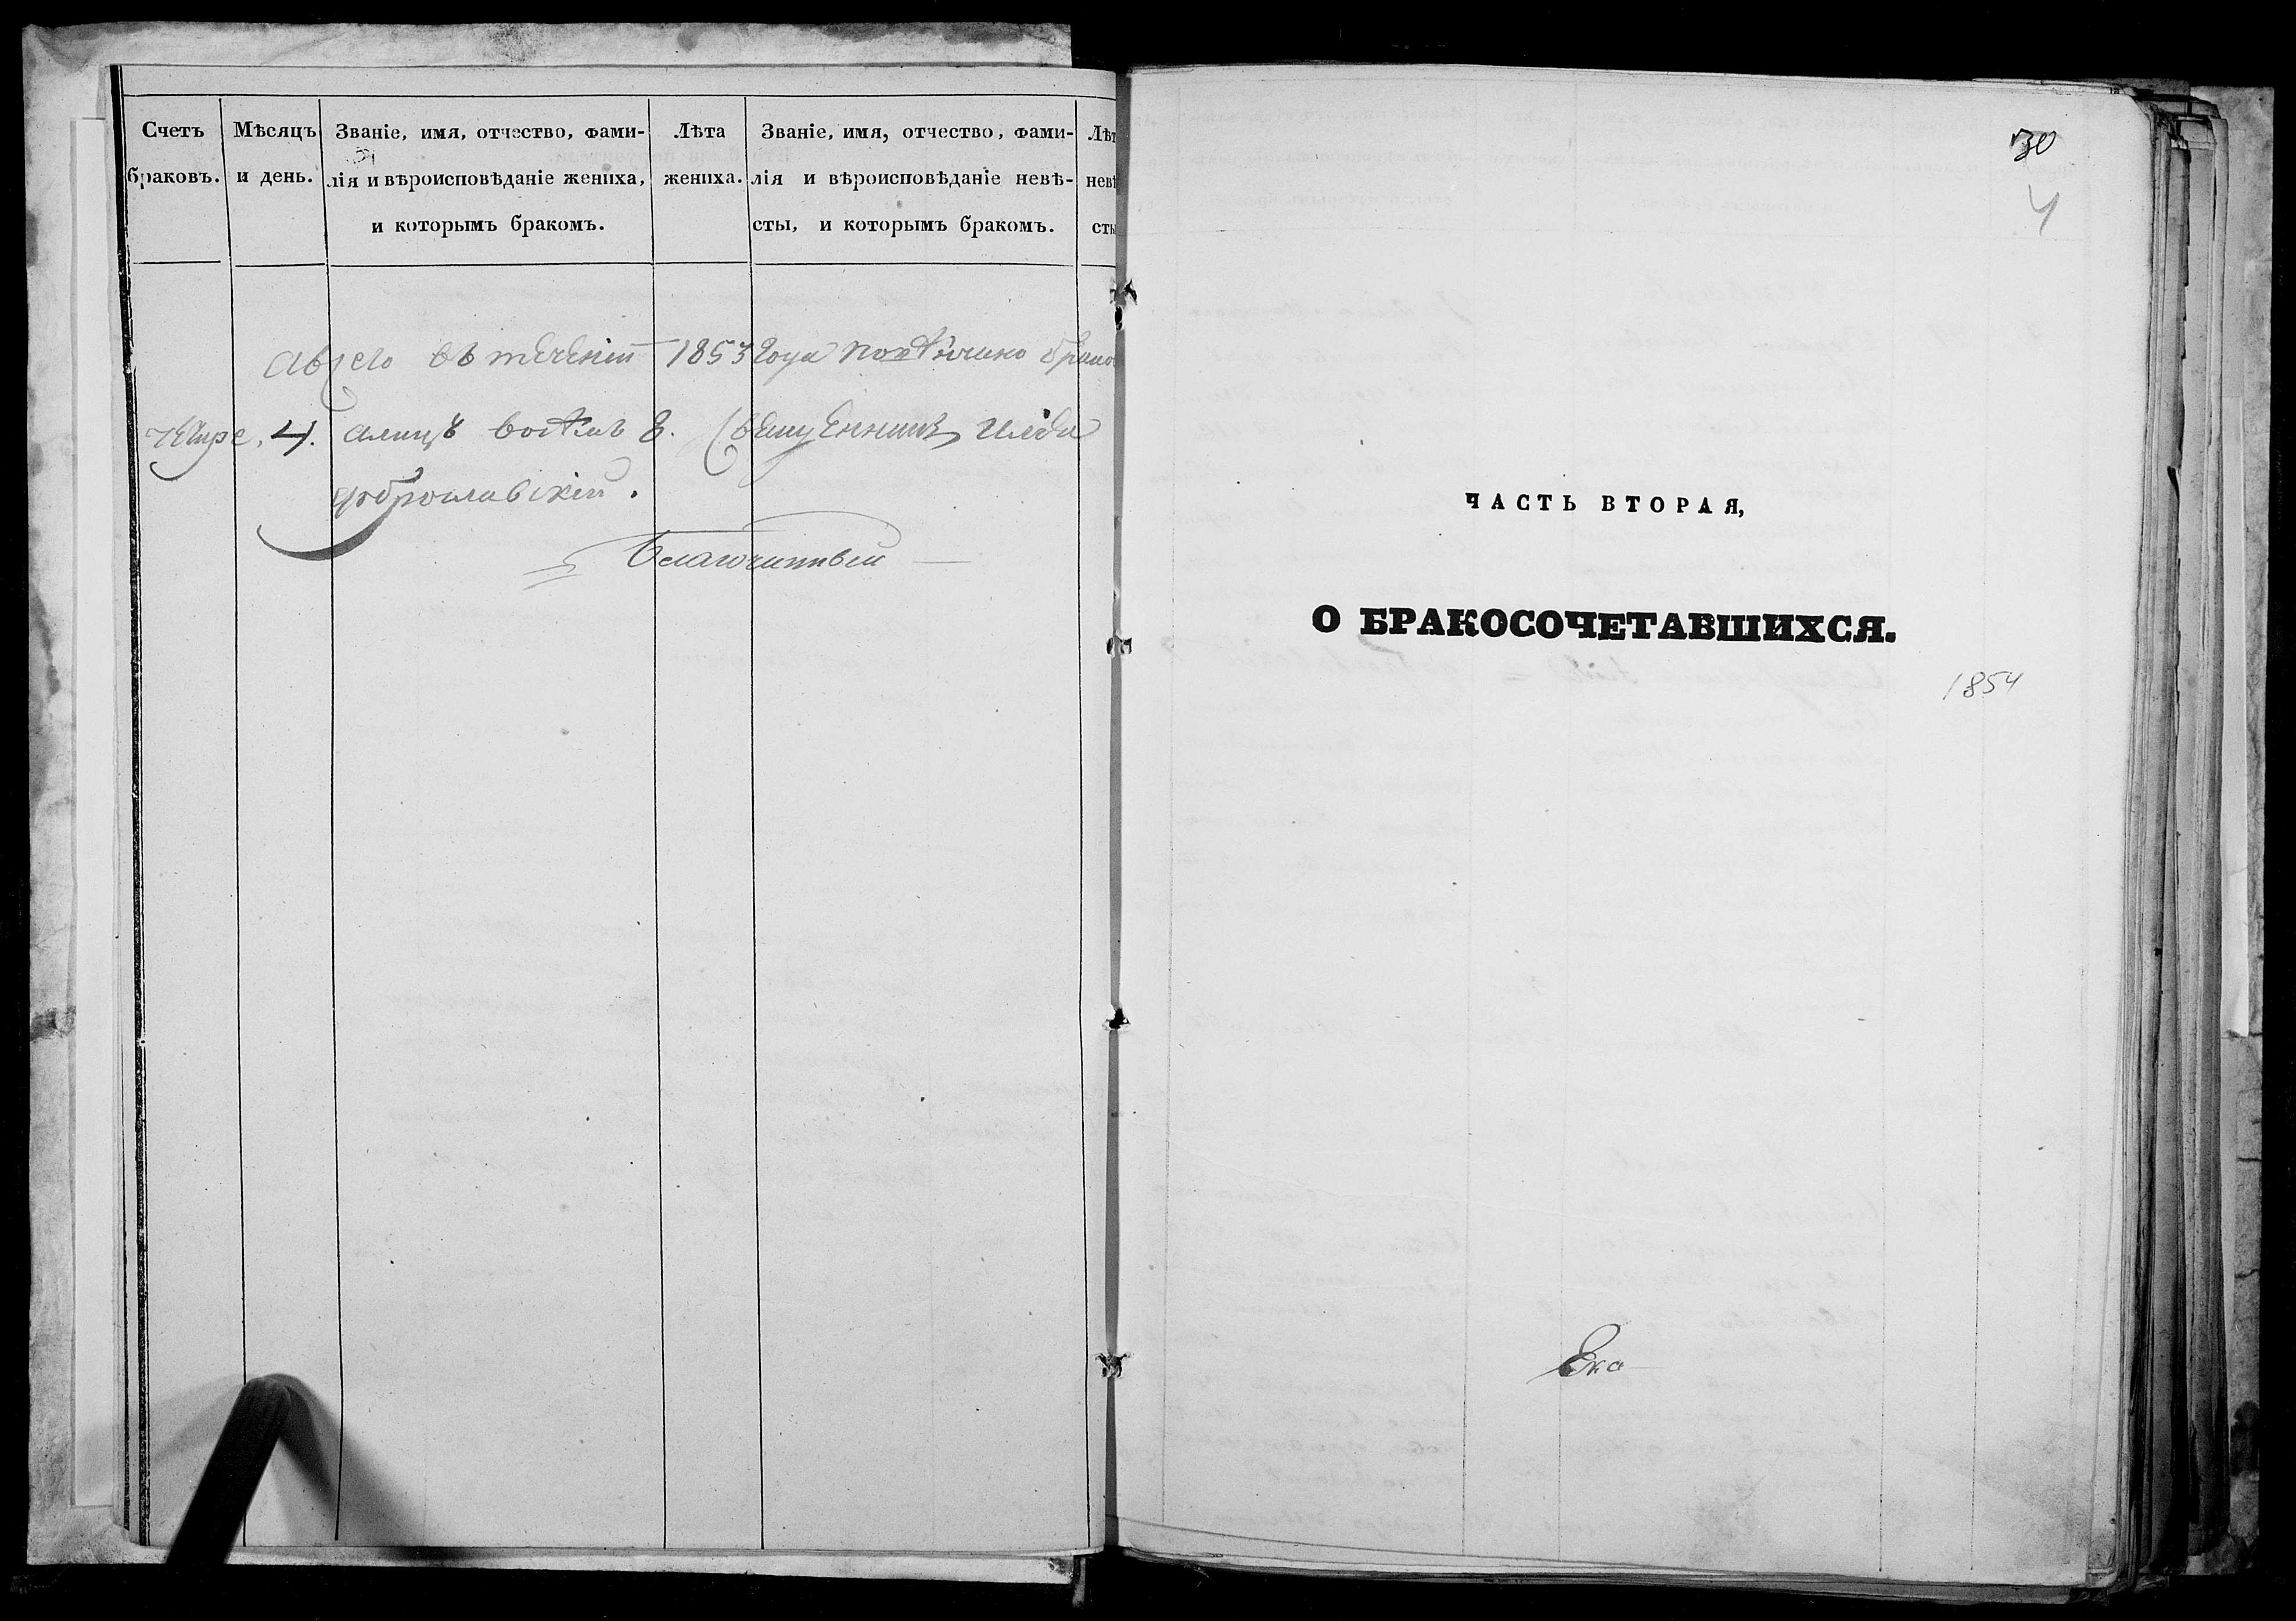 Счетъ браковъ.
Мѣсяцъ и день.
Званіе, имя, отчество, фами-
лія и вѣроисповѣданіе жениха,
и которымъ бракомъ.
Лѣта жениха.
Званіе, имя, отчество, фами-
лія и вѣроисповѣданіе невѣ-
сты, и которымъ бракомъ.
Лѣт
невѣ
сты
А всего въ теченіи 1853 года повѣнчано брако
четыре, 4. а лицъ восѣмь 8. Священникъ Илія
Доброславскій.
Благочинный
30
4
ЧАСТЬ ВТОРАЯ,
О БРАКОСОЧЕТАВШИХСЯ.
1854
Ека